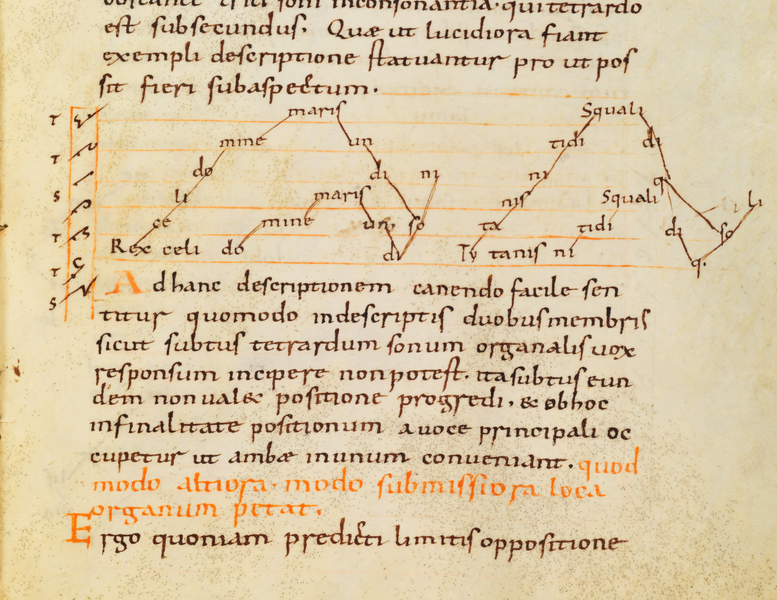 est subsecundus. Quæ ut lucidiora fiant
exempli descriptione statuantur pro ut pos
sit fieri subaspectum.
maris Squali
T mine un tidi di
T do di ni ni q
S li maris nis Squali li
T ce mine un so ta tidi di so
T Rex celi do di Ty tanis ni q.
T
S
Ad hanc descriptionem canendo facile sen
titur quomodo indescriptis duobus membris
sicut subtus tetrardum sonum organalis uox
responsum incipere non potest. ita subtus eun
dem non ualet positione progredi. & obhoc
infinalitate positionum auoce principali oc
cupetur ut ambæ inunum conueniant. quod
modo altiora. modo submissiora loca
organum petat.
Ergo quoniam predicti limitis oppositione